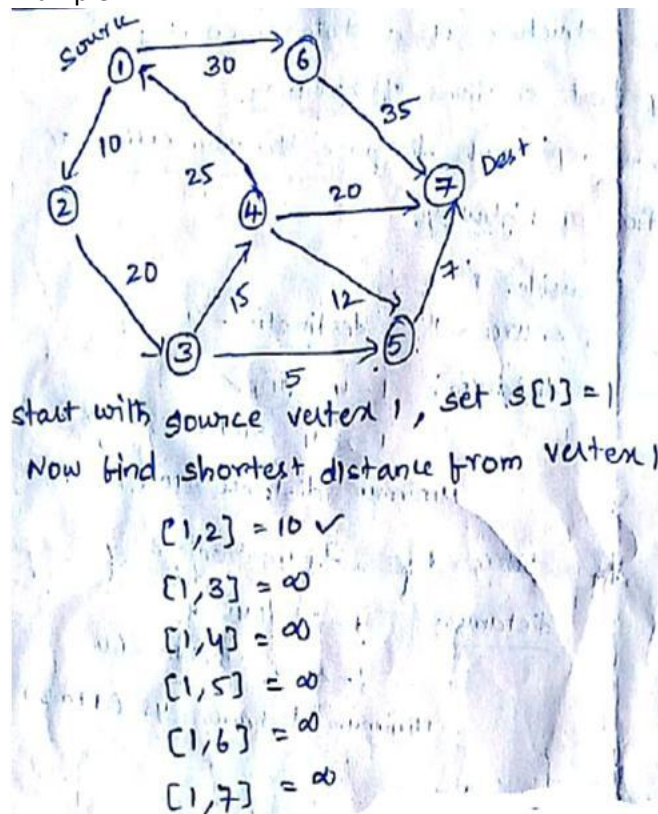 Source
1 30 6
10 25 35
2 4 20 7 Dest
20 15 12 7
3 5 5
start with source vertex 1, set s[1] = 1
Now find shortest distance from vertex 1
[1,2] = 10 ✓
[1,3] = ∞
[1,4] = ∞
[1,5] = ∞
[1,6] = ∞
[1,7] = ∞